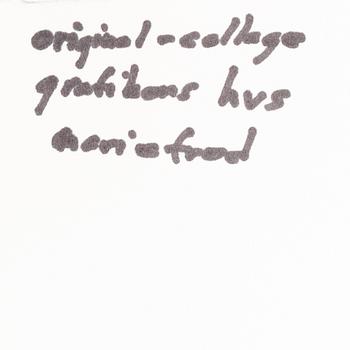 original-collage
grafikens hus
mariefred